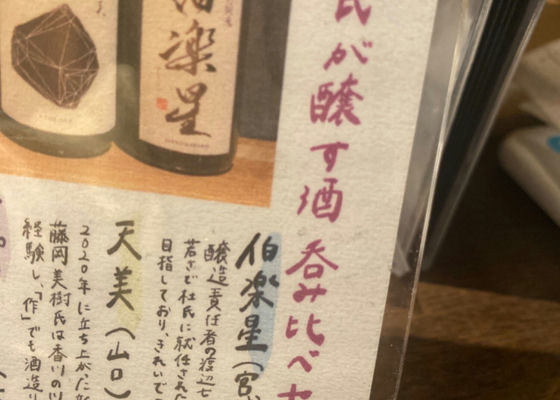 氏が醸す酒 呑み比べセ
伯楽星
伯楽星(宮
醸造責任者の渡辺
若さで杜氏に就任された
目指しており、きれいで
天美(山口)
2020年に立ち上がった新
藤岡美樹氏は香川の
経験し、「作」でも酒造り